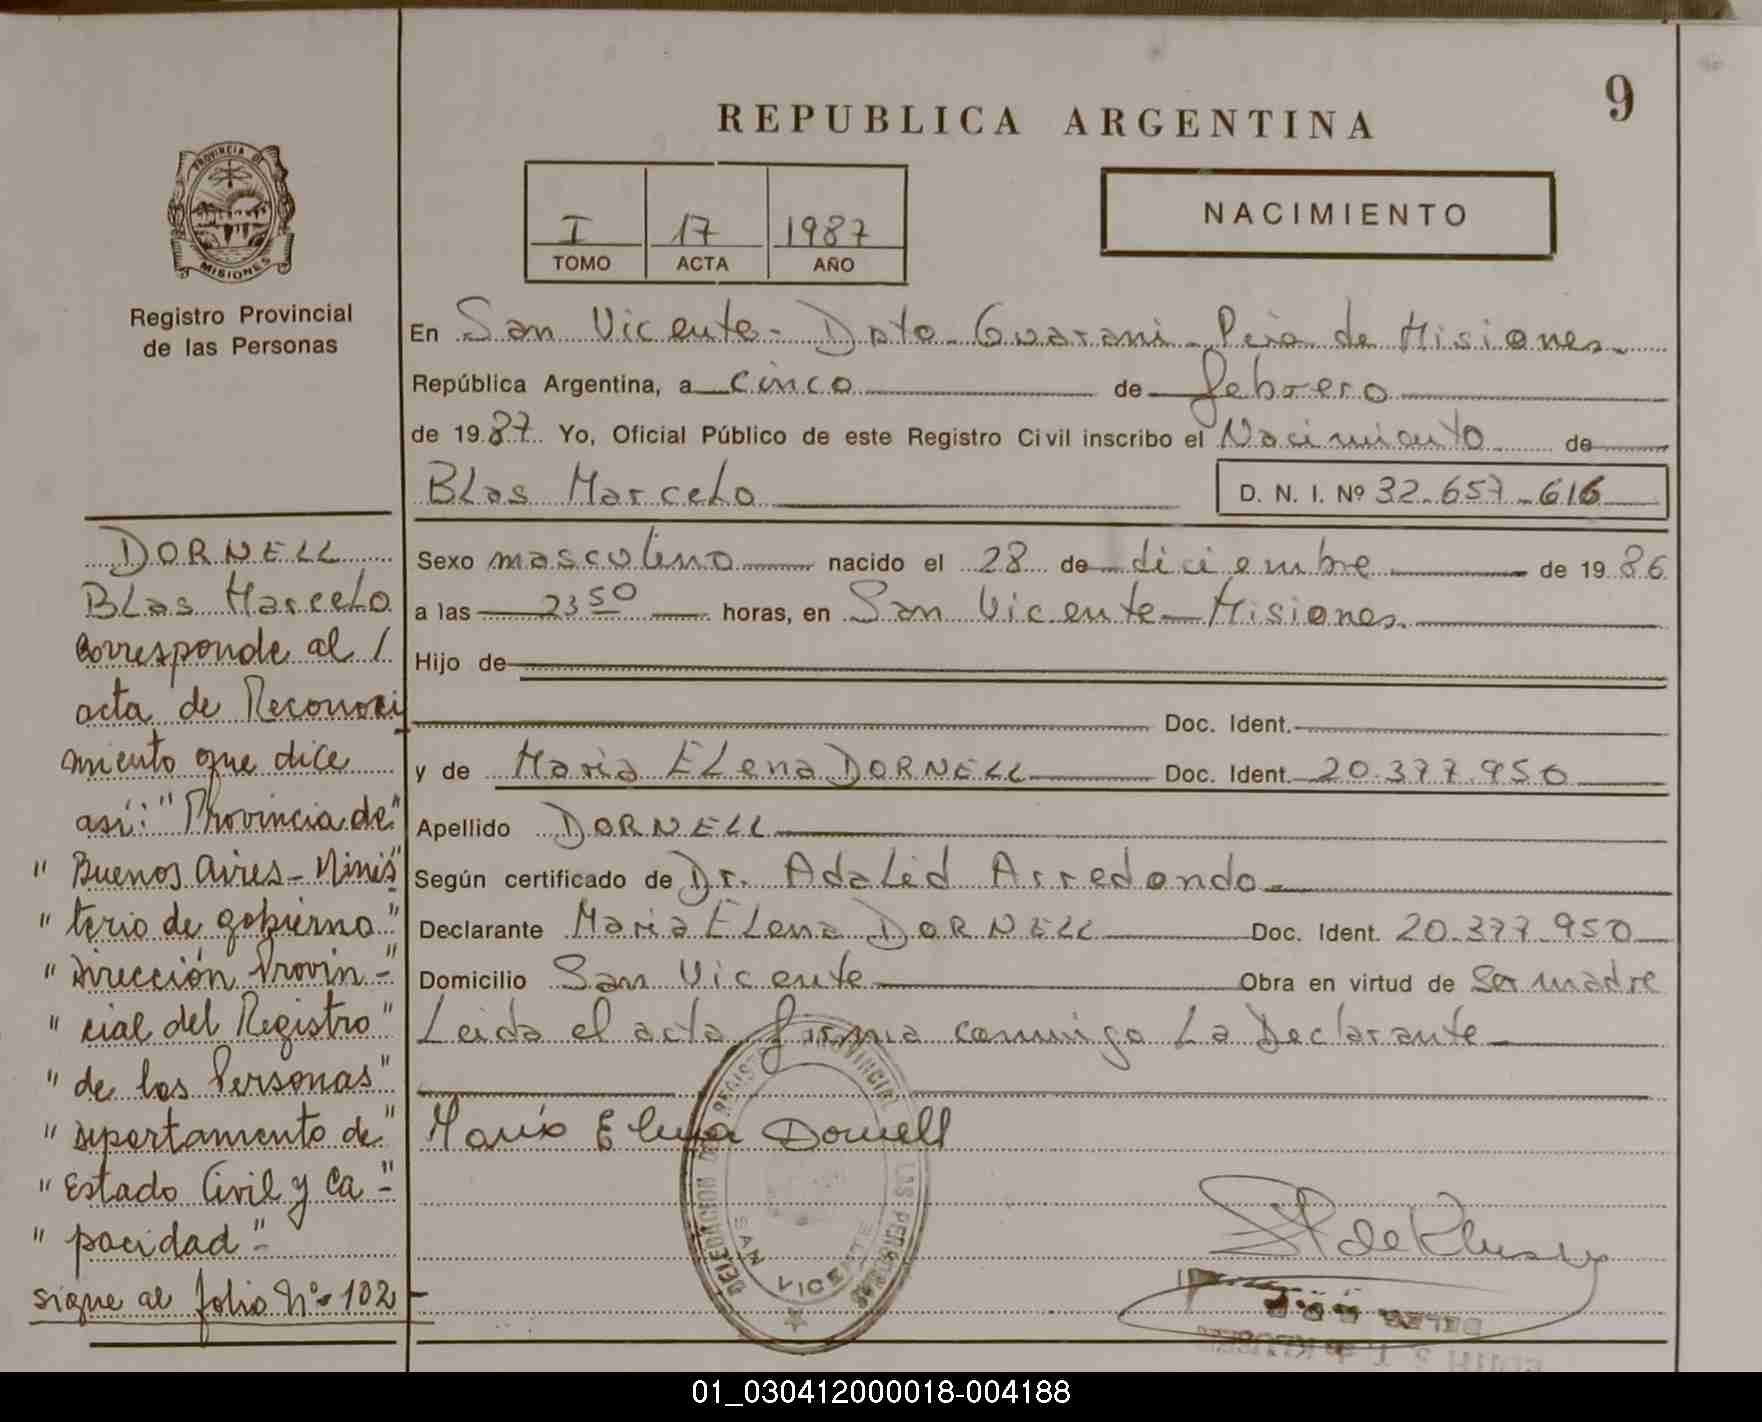 9
REPUBLICA ARGENTINA
PROVINCIA DE
MISIONES
Registro Provincial
de las Personas
I 17 1987
TOMO ACTA AÑO
NACIMIENTO
En San Vicente - Dpto - Guarani - Pcia de Misiones.
República Argentina, a cinco de febrero
de 1987. Yo, Oficial Público de este Registro Civil inscribo el Nacimiento de
Blas Marcelo D. N. I. Nº 32.657.616
Sexo masculino nacido el 28 de diciembre de 1986
a las 23 50 horas, en San Vicente - Misiones.
Hijo de
Doc. Ident.
y de Maria Elena DORNELL Doc. Ident. 20.377.950
Apellido DORNELL
Según certificado de Dr. Adalid Arredondo
Declarante Maria Elena DORNELL Doc. Ident. 20.377.950
Domicilio San Vicente Obra en virtud de ser madre
Leida el acta firma conmigo La Declarante
Maria Elena Dornell
DELEGACION DEL REGISTRO PROVINCIAL DE LAS PERSONAS
SAN VICENTE
DORNELL
Blas Marcelo
corresponde al /
acta de Reconoci
miento que dice
así: "Provincia de"
" Buenos Aires - Minis"
" terio de gobierno "
" Dirección Provin - "
" cial del Registro "
" de las Personas "
" Departamento de "
" Estado Civil y Ca - "
" pacidad " -
sigue al folio Nº 102 -
01_030412000018-004188